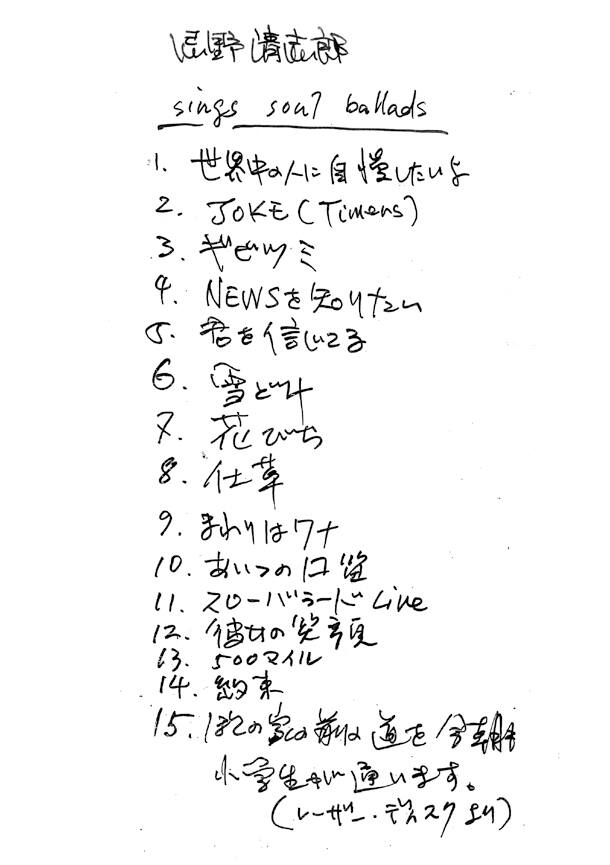 忌野清志郎
sings soul ballads
1. 世界中の人に自慢したいよ
2. JOKE (Timers)
3. ギビツミ
4. NEWSを知りたい
5. 君を信じてる
6. 雪どけ
7. 花びら
8. 仕草
9. まわりはワナ
10. あいつの口笛
11. スローバラード Live
12. 彼女の笑顔
13. 500マイル
14. 約束
15. ぼくの家の前の道を今朝も
小学生が通います。
(レーザー・ディスクより)